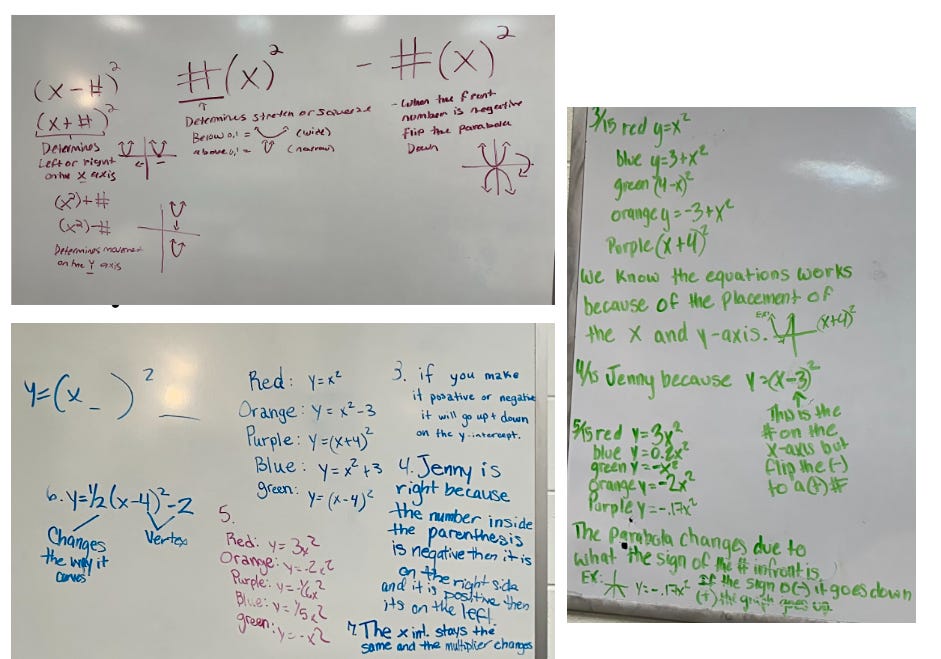 (x - #)²
(x + #)²
Determines
Left or right
on the x axis
(x²)+#
(x²)-#
Determines movement
on the y axis
#(x)²
Determines stretch or squeeze
Below 0,1 = (wide)
above 0,1 = (narrow)
- #(x)²
- When the front
number is negative
flip the parabola
Down
y=(x _ )² __
6. y=½(x-4)²-2
Changes
the way it
curves
Vertex
Red: y=x²
Orange: y=x²-3
Purple: y=(x+4)²
Blue: y=x²+3
green: y=(x-4)²
5.
Red: y=3x²
Orange: y=-2x²
Purple: y=-1/6x²
Blue: y=1/5x²
green: y=-x²
3. if you make
it posative or negative
it will go up + down
on the y-intercept.
4. Jenny is
right because
the number inside
the parenthesis
is negative then it is
on the right side
and it is positive then
its on the left.
7. The x int. stays the
same and the multiplier changes
3/15 red y=x²
blue y=3+x²
green (4-x)²
orange y=-3+x²
Purple (x+4)²
We know the equations works
because of the placement of
the x and y-axis. Ex: (x+4)²
4/15 Jenny because y=(x-3)²
This is the
# on the
x-axis but
flip the (-)
to a (+) #
5/15 red y=3x²
blue y=0.2x²
green y=-x²
orange y=-2x²
Purple y=-.17x²
The Parabola changes due to
what the sign of the # infront is
Ex: y=-.17x² If the sign is (-) it goes down
(+) the graph goes up